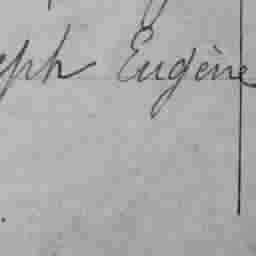 eph Eugène